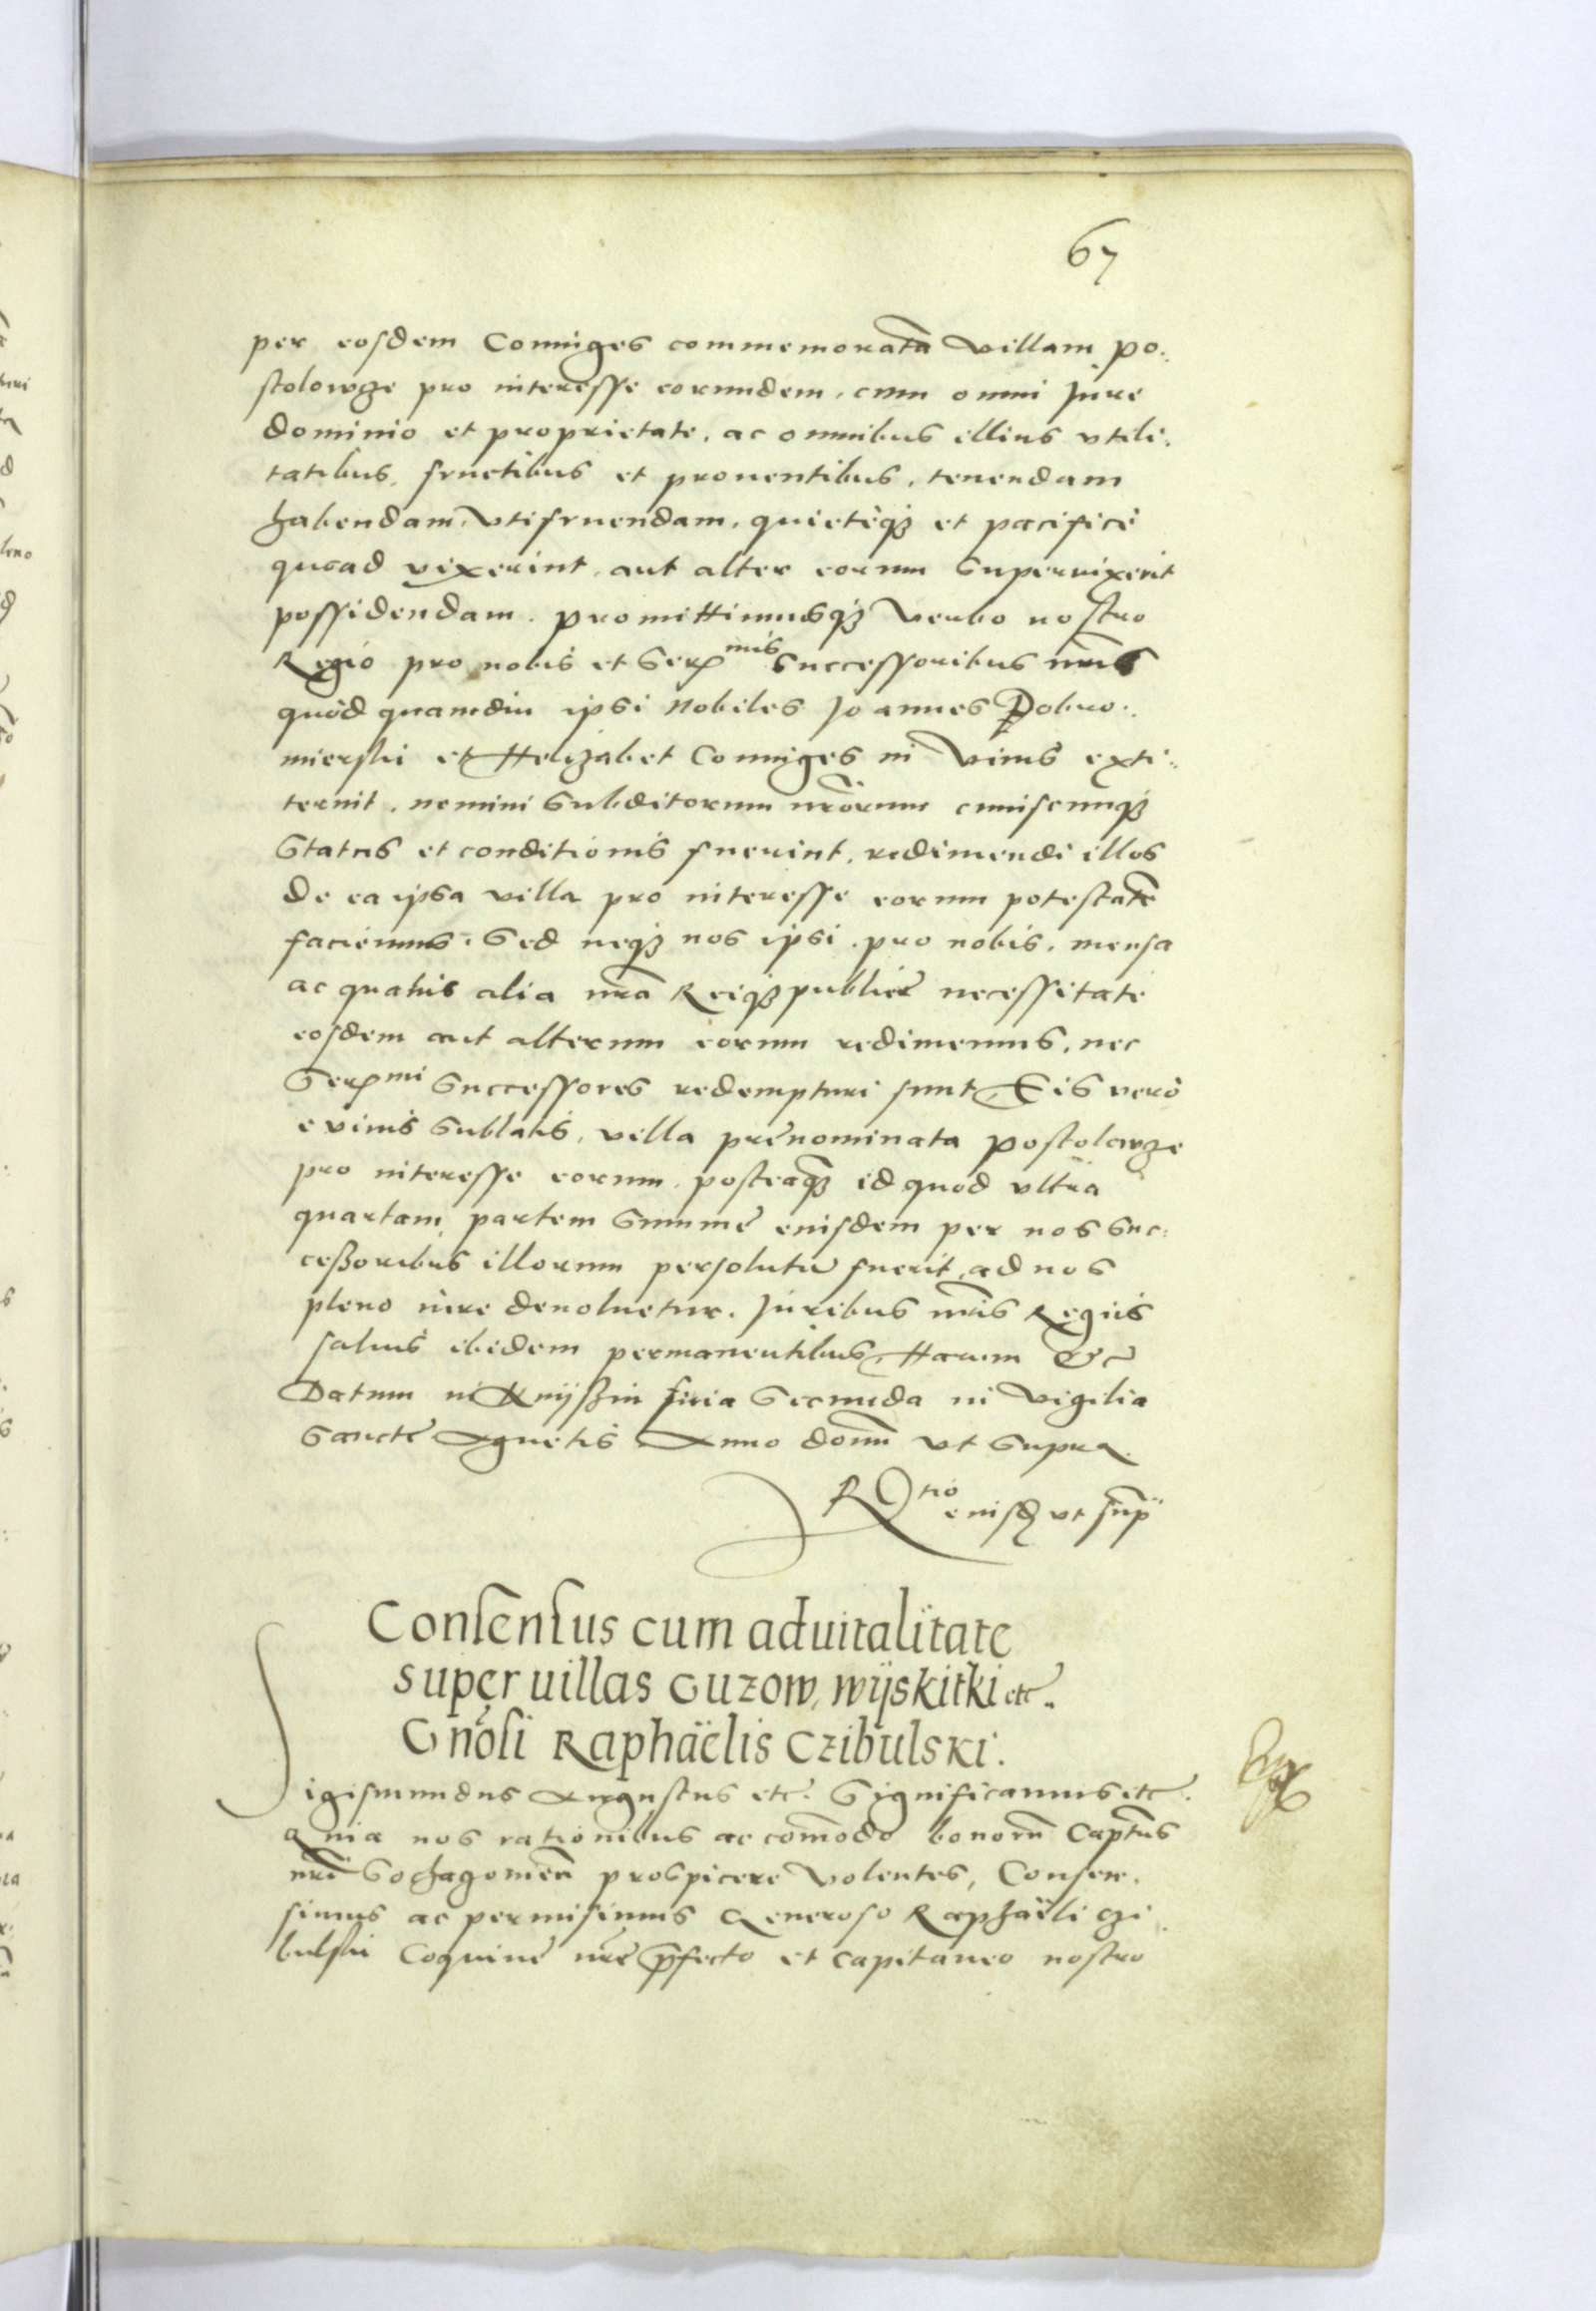 67
per eosdem Coniuges commemoratã Villam Po:
stolowze pro interesse eorundem, cum omni Jure
dominio et proprietate, ac omnibus illius vtili:
tatibus, fructibus et prouentibus, tenendam
habendam, Vtifruendam, quieteq3 et pacifice
quoad vixerint, aut alter eorum superuixerit
possidendam. Promittimusq3 Verbo nostro
Regio pro nobis et Ser mis successoribus nr̃is
quòd quamdiu ipsi Nobiles Joannes Dobro:
mierski et Helizabet Coniuges in Viuis exti:
terint, nemini subditorum nr̃orum cuiuscunq3
status et conditionis fuerint, redimendi illos
de ea ipsa villa pro interesse eorum potestatẽ
faciemus, Sed neq3 nos ipsi, pro nobis, mensa
ac quauis alia nr̃a Reiq3publicę necessitate
eosdem aut alterum eorum redimemus, nec
Ser mi Successores redempturi sunt, Eis vero
e viuis sublatis, villa prenominata Postolowze
pro interesse eorum, posteaq̃3 id quod vltra
quartam partem summę eiusdem per nos suc:
cessoribus illorum persolutũ fuerit, ad nos
pleno iure deuoluetur. Juribus nr̃is Regiis
saluis ibidem permanentibus, Harum &c
Datum in Knijssin feria Secunda in Vigilia
Sanctę Agnetis Anno domĩ vt supra.
R tio eiusd vt sup̃
Consensus cum aduitalitate
super uillas Guzow, wijskitki etc.
Gñosi Raphaëlis Czibulski.
Sigismundus Augustus etc. Significamus etc.
Quia nos rationibus ac com̃odo bonorũ Captus
nr̃i Sochagomeñ prospicere Volentes, Consen:
simus ac permisimus Generoso Raphaëli Czi
bulski Coquinę nr̃ę p̃fecto et Capitaneo nostro